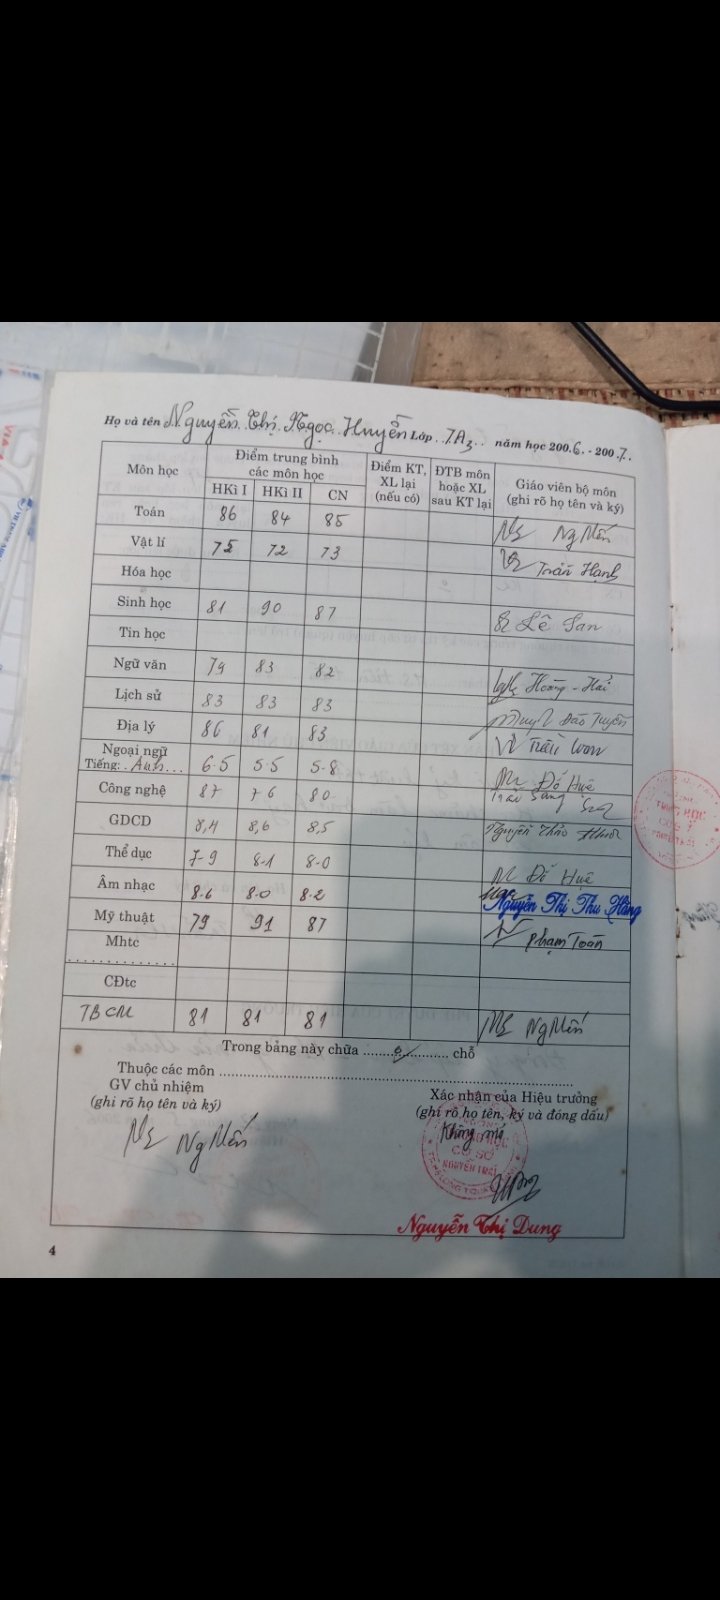 Họ và tên Nguyễn Thị Ngọc Huyền Lớp 7A3 năm học 2006 - 2007.
Môn học Điểm trung bình các môn học Điểm KT, XL lại (nếu có) ĐTB môn hoặc XL sau KT lại Giáo viên bộ môn (ghi rõ họ tên và ký)
HKì I HKì II CN
Toán 86 84 85 Ng Mến
Vật lí 75 72 73 Trần Hạnh
Hóa học
Sinh học 81 90 87 Lê San
Tin học
Ngữ văn 79 83 82 Hoàng Hải
Lịch sử 83 83 83 Đào Tuyển
Địa lý 86 81 83 Trần
Ngoại ngữ
Tiếng: Anh 6.5 5.5 5.8 Đỗ Huệ
Công nghệ 87 76 80 Trần Sang
GDCD 8,4 8,6 8,5 Nguyễn Thảo
Thể dục 7-9 8-1 8-0 Đỗ Huệ
Âm nhạc 8.6 8.0 8.2 Nguyễn Thị Thu Hằng
Mỹ thuật 79 91 87 Phạm Toàn
Mhtc
CĐtc
TBCM 81 81 81 Ng Mến
Trong bảng này chữa 0 chỗ
Thuộc các môn
GV chủ nhiệm Xác nhận của Hiệu trưởng
(ghi rõ họ tên và ký) (ghi rõ họ tên, ký và đóng dấu)
Ng Mến
CƠ SỞ
NGUYỄN TRÃI
Nguyễn Thị Dung
4